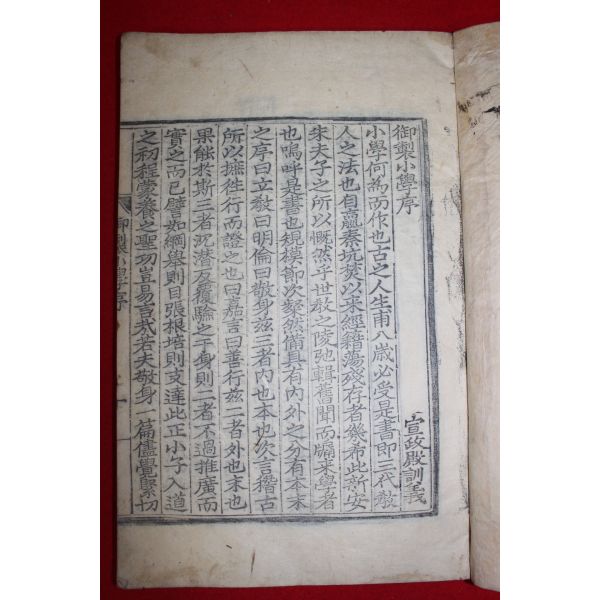 御製小學序
宣政殿訓義
小學何爲而作也古之人生甫八歲必受是書卽三代敎
人之法也自嬴秦坑焚以來經籍蕩殘存者幾希此新安
朱夫子之所以慨然乎世敎之陵弛輯舊聞而牖來學者
也嗚呼是書也規模節次粲然備具有內外之分有本末
之序曰立敎曰明倫曰敬身玆三者內也本也次言稽古
所以摭往行而證之也曰嘉言曰善行玆二者外也末也
果能於斯三者沉潛反覆驗之于身則二者不過推廣而
實之而已譬如綱擧則目張根培則支達此正小子入道
之初程蒙養之聖功豈易言㢤若夫敬身一篇儘覺緊切
御製小學序